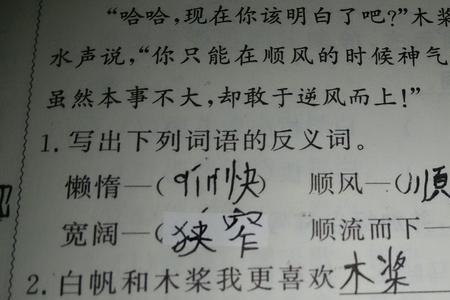 “哈哈,现在你该明白了吧?”木桨
水声说,“你只能在顺风的时候神气
虽然本事不大,却敢于逆风而上!”
1.写出下列词语的反义词。
懒惰—(快) 顺风—(顺
宽阔—(狭窄 顺流而下—
2.白帆和木桨我更喜欢木桨